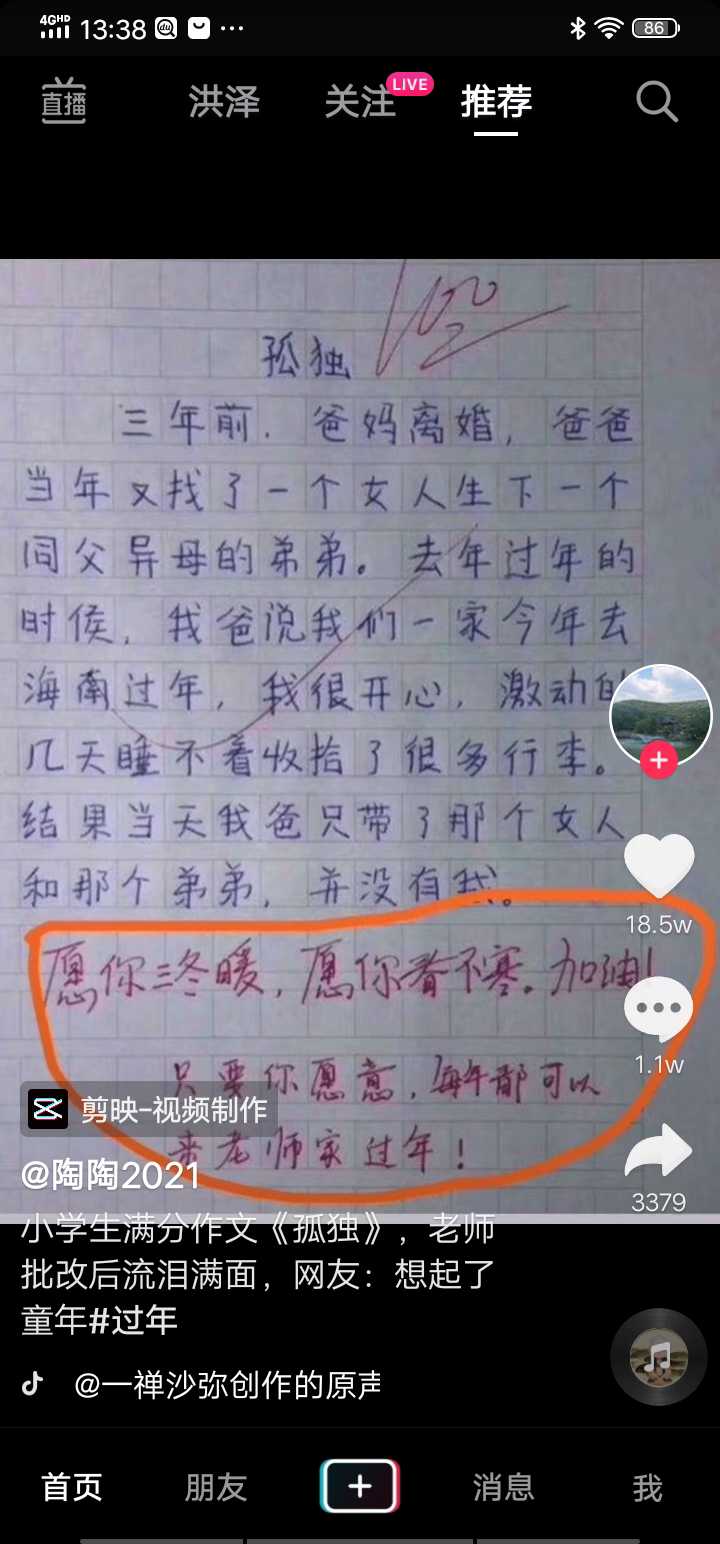 4GHD 13:38 86
直播 洪泽 关注 LIVE 推荐
100
孤独
三年前.爸妈离婚,爸爸
当年又找了一个女人生下一个
同父异母的弟弟。去年过年的
时侯,我爸说我们一家今年去
海南过年,我很开心,激动的
几天睡不着收拾了很多行李。
结果当天我爸只带了那个女人
和那个弟弟,并没有我。
愿你三冬暖,愿你春不寒。加油!
只要你愿意,每年都可以
来老师家过年!
18.5w
1.1w
3379
剪映-视频制作
@陶陶2021
小学生满分作文《孤独》,老师
批改后流泪满面,网友:想起了
童年#过年
@一禅沙弥创作的原声
首页 朋友 消息 我